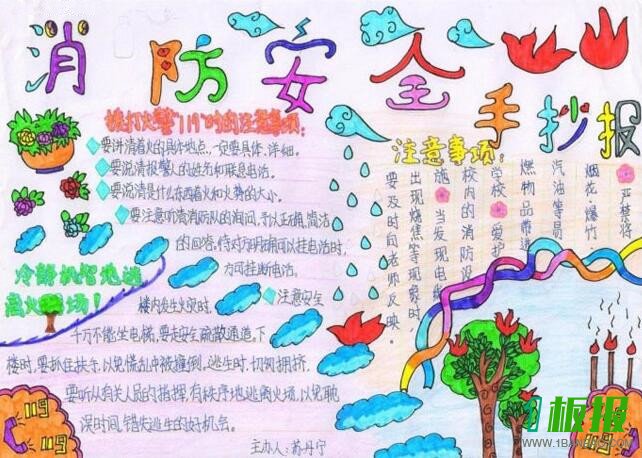 消防安全手抄报
拨打火警"119"时的注意事项:
要讲清着火的具体地点,一定要具体、详细。
要说清报警人的姓名和联系电话。
要说清是什么东西着火和火势的大小。
要注意听清消防队的询问,予以正确,简洁
的回答,待对方明确可以挂电话时,
方可挂断电话。
冷静机智地逃
离火现场!
注意安全
楼内发生火灾时,
千万不能坐电梯,要走安全疏散通道。下
楼时,要抓住扶手,以免慌乱中被撞倒。逃生时,切勿拥挤,
要听从有关人员的指挥,有秩序地逃离火场,以免耽
误时间,错失逃生的好机会。
主办人:苏丹宁
注意事项:
严禁将
烟花、爆竹
汽油等易
燃物品带进
学校
爱护
校内的消防设
施
当发现电线
出现烧焦等现象时,
要及时向老师反映。
119
119
119
板报
WWW.1BANBAO.COM